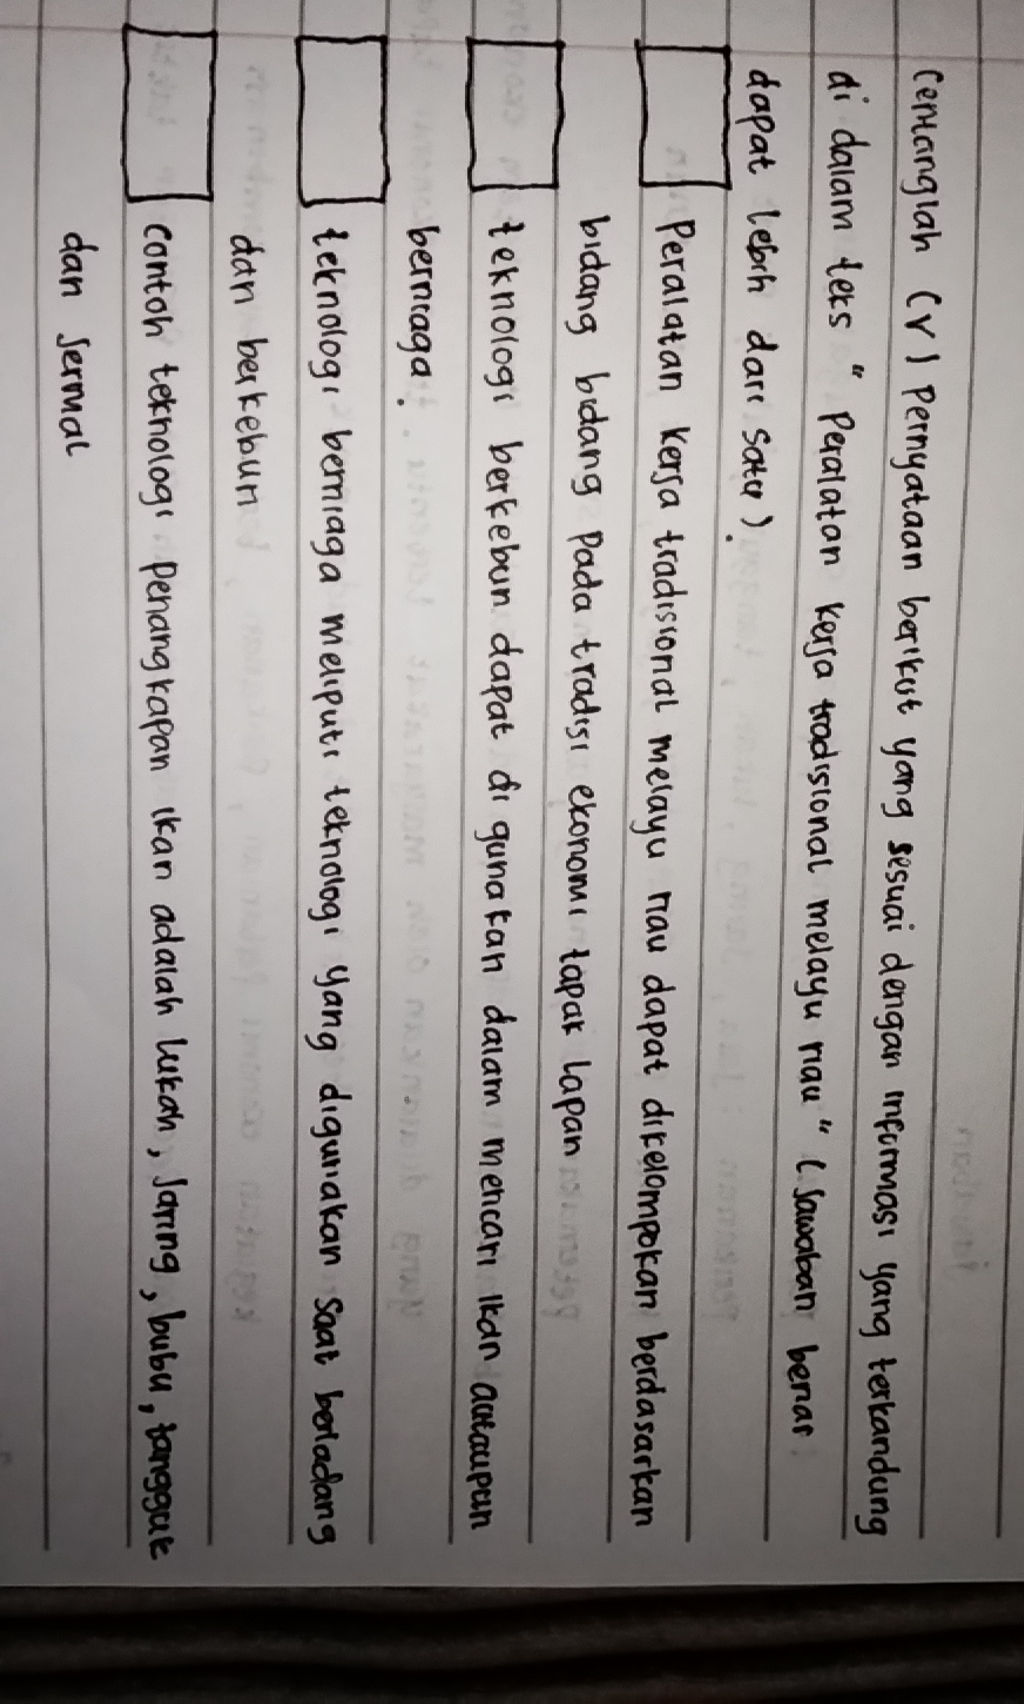 Centanglah (√) Pernyataan berikut yang sesuai dengan informasi yang terkandung
di dalam teks " Peralatan kerja tradisional melayu riau " ( Jawaban benar
dapat lebih dari satu ).
Peralatan kerja tradisional melayu riau dapat dikelompokan berdasarkan
bidang bidang pada tradisi ekonomi tapak lapan
teknologi berkebun dapat di gunakan dalam mencari ikan ataupun
berniaga.
teknologi berniaga meliputi teknologi yang digunakan saat berladang
dan berkebun
contoh teknologi penangkapan ikan adalah lukah, jaring, bubu, tangguk
dan jermal